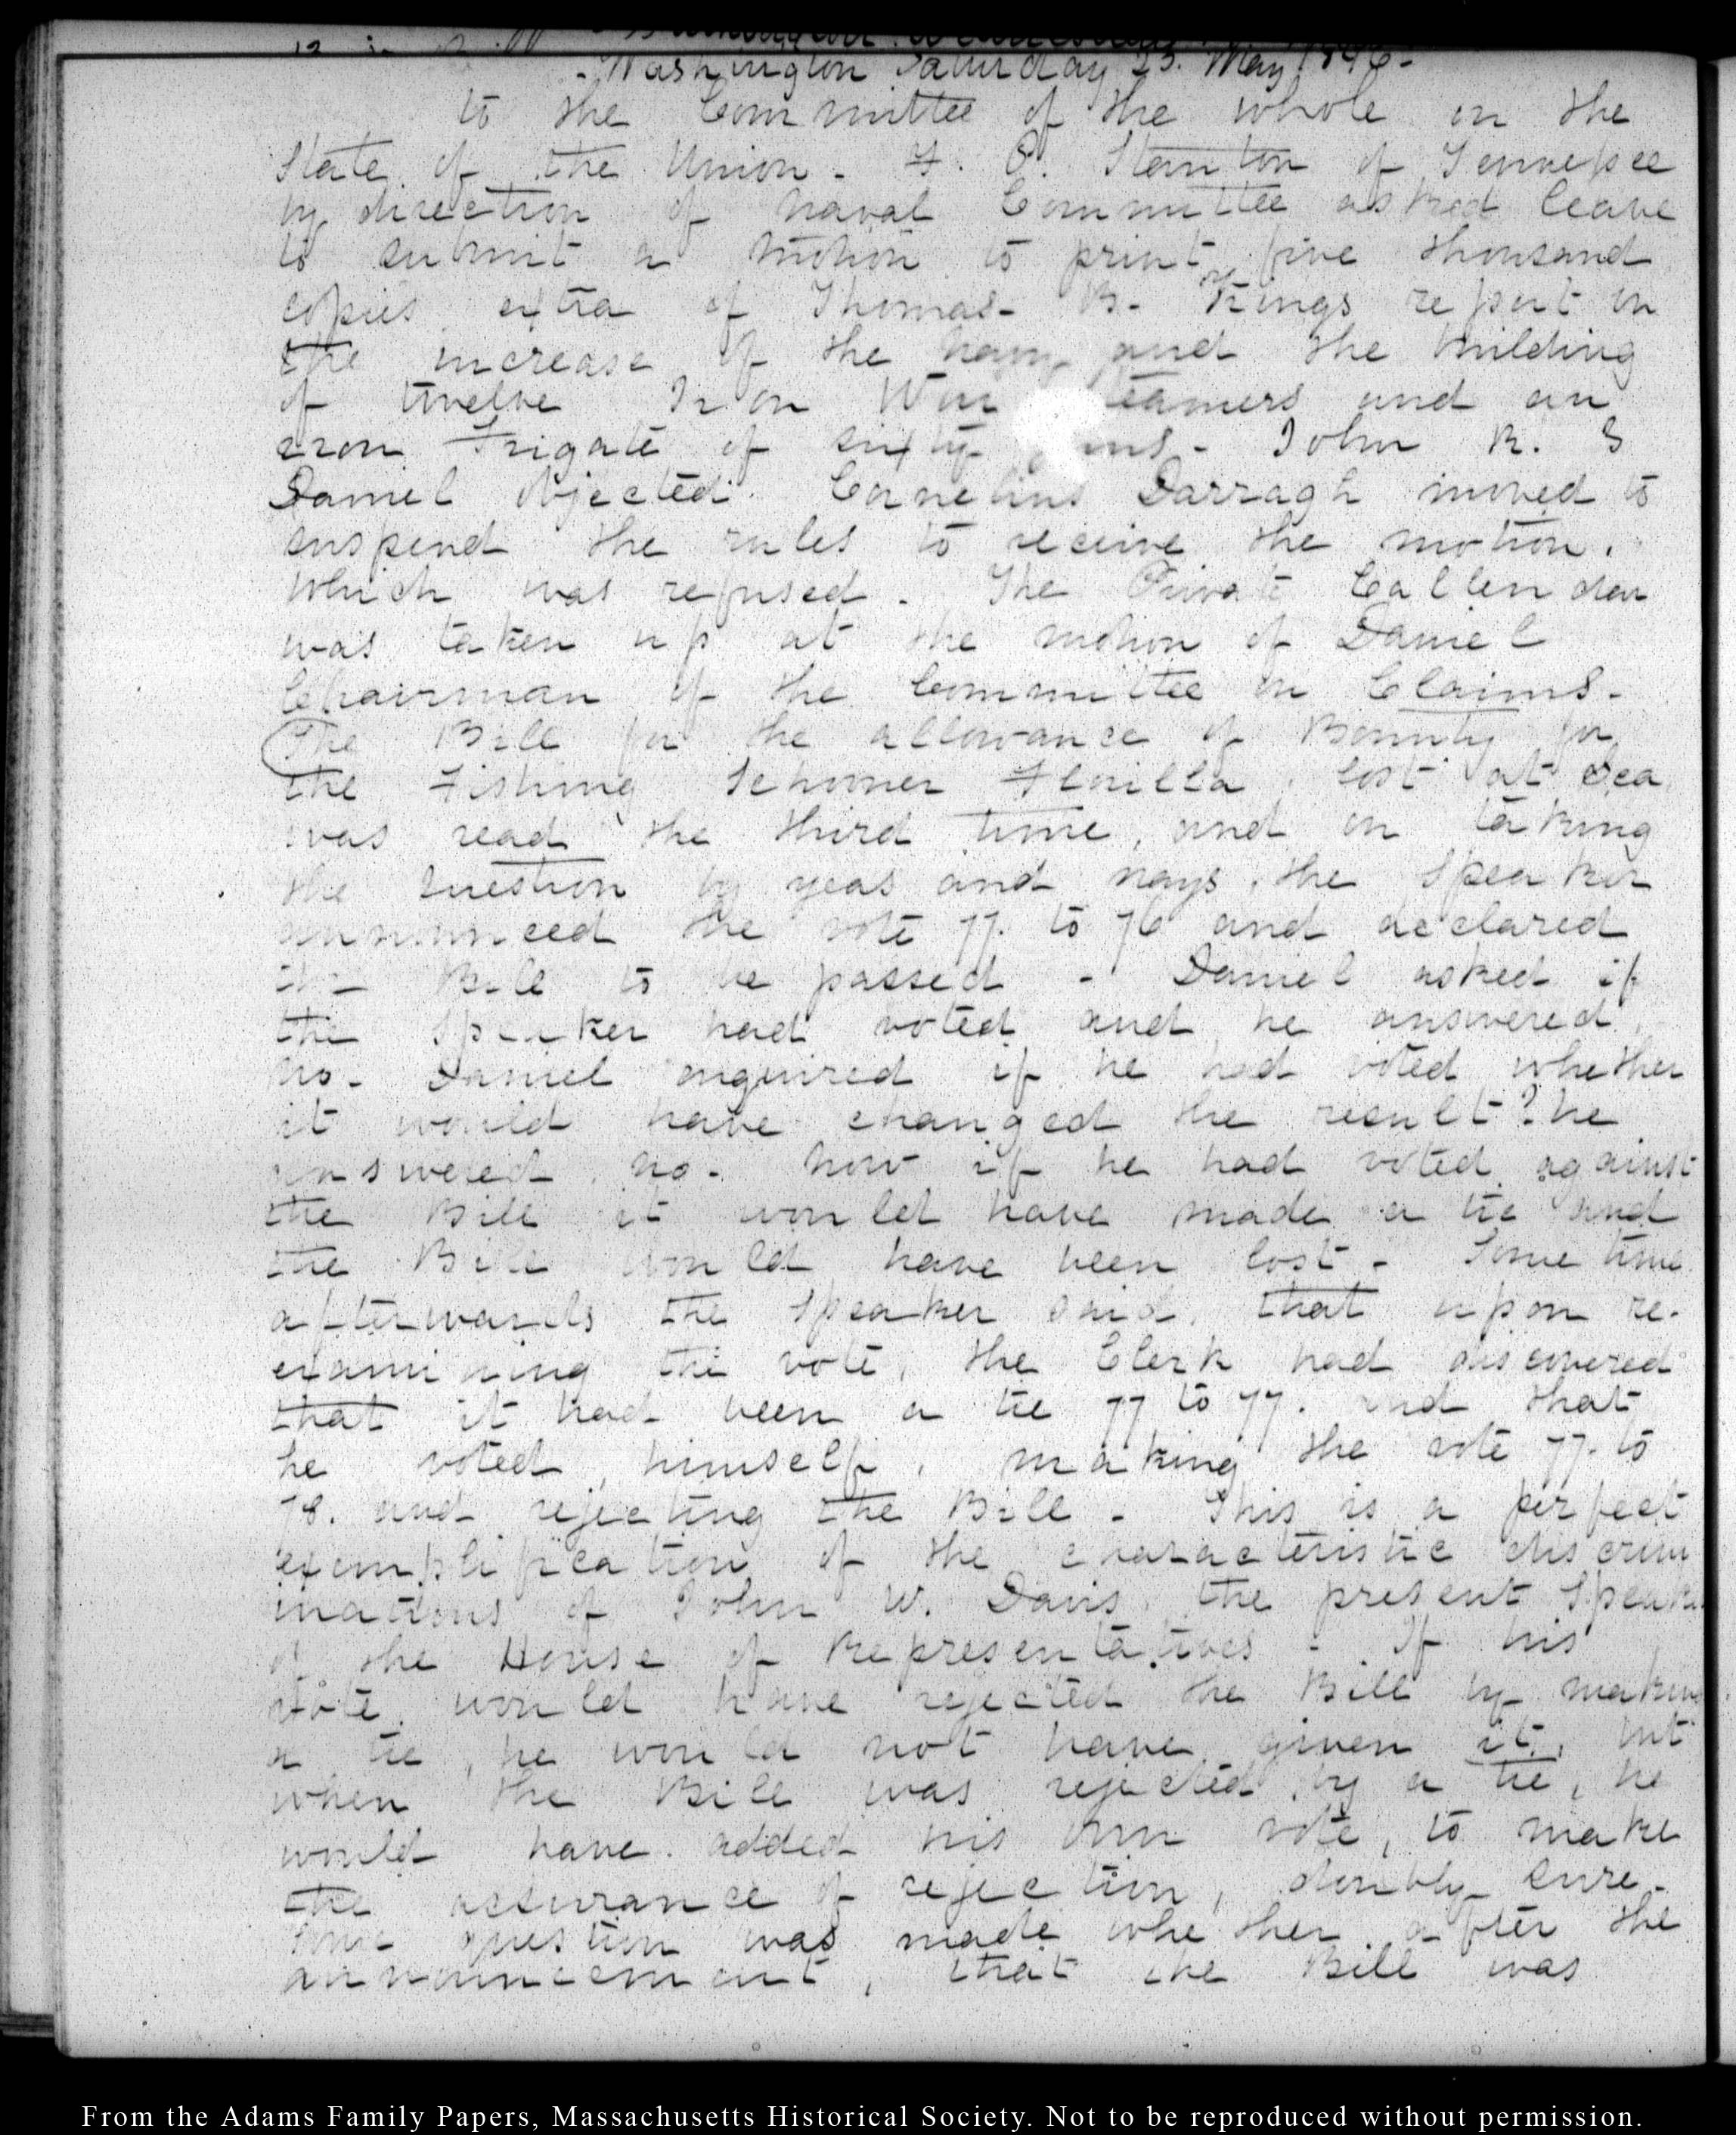 - Washington Saturday 23. May 1846 -
to the Committee of the whole on the
State of the Union - F. P. Stanton of Tennessee
by direction of Naval Committee asked leave
to submit a motion to print five thousand
copies extra of Thomas - B. Kings report on
the increase of the Navy and the building
of twelve Iron War Steamers and an
iron Frigate of sixty guns - John R. J
Daniel objected. Cornelius Darragh moved to
suspend the rules to receive the motion.
which was refused. The Private Callendar
was taken up at the motion of Daniel
Chairman of the Committee on Claims -
The Bill for the allowance of Bounty for
the Fishing Schooner Florilla, lost at Sea
was read the third time, and on taking
the question by yeas and nays, the Speaker
announced the vote 77. to 76 and declared
the Bill to be passed - Daniel asked if
the Speaker had voted and he answered
no - Daniel enquired if he had voted whether
it would have changed the result? he
answered no - Now if he had voted against
the Bill it would have made a tie and
the Bill would have been lost - Some time
afterwards the Speaker said, that upon re-
examining the vote, the Clerk had discovered
that it had been a tie 77 to 77. and that
he voted himself, making the vote 77. to
78. and rejecting the Bill - This is a perfect
exemplification of the characteristic discrim
inations of John W. Davis the present Speaker
of the House of Representatives - If his
vote would have rejected the Bill by making
a tie, he would not have given it, but
when the Bill was rejected by a tie, he
would have added his own vote, to make
the assurance of rejection, doubly sure -
Some question was made whether after the
announcement, that the Bill was
From the Adams Family Papers, Massachusetts Historical Society. Not to be reproduced without permission.